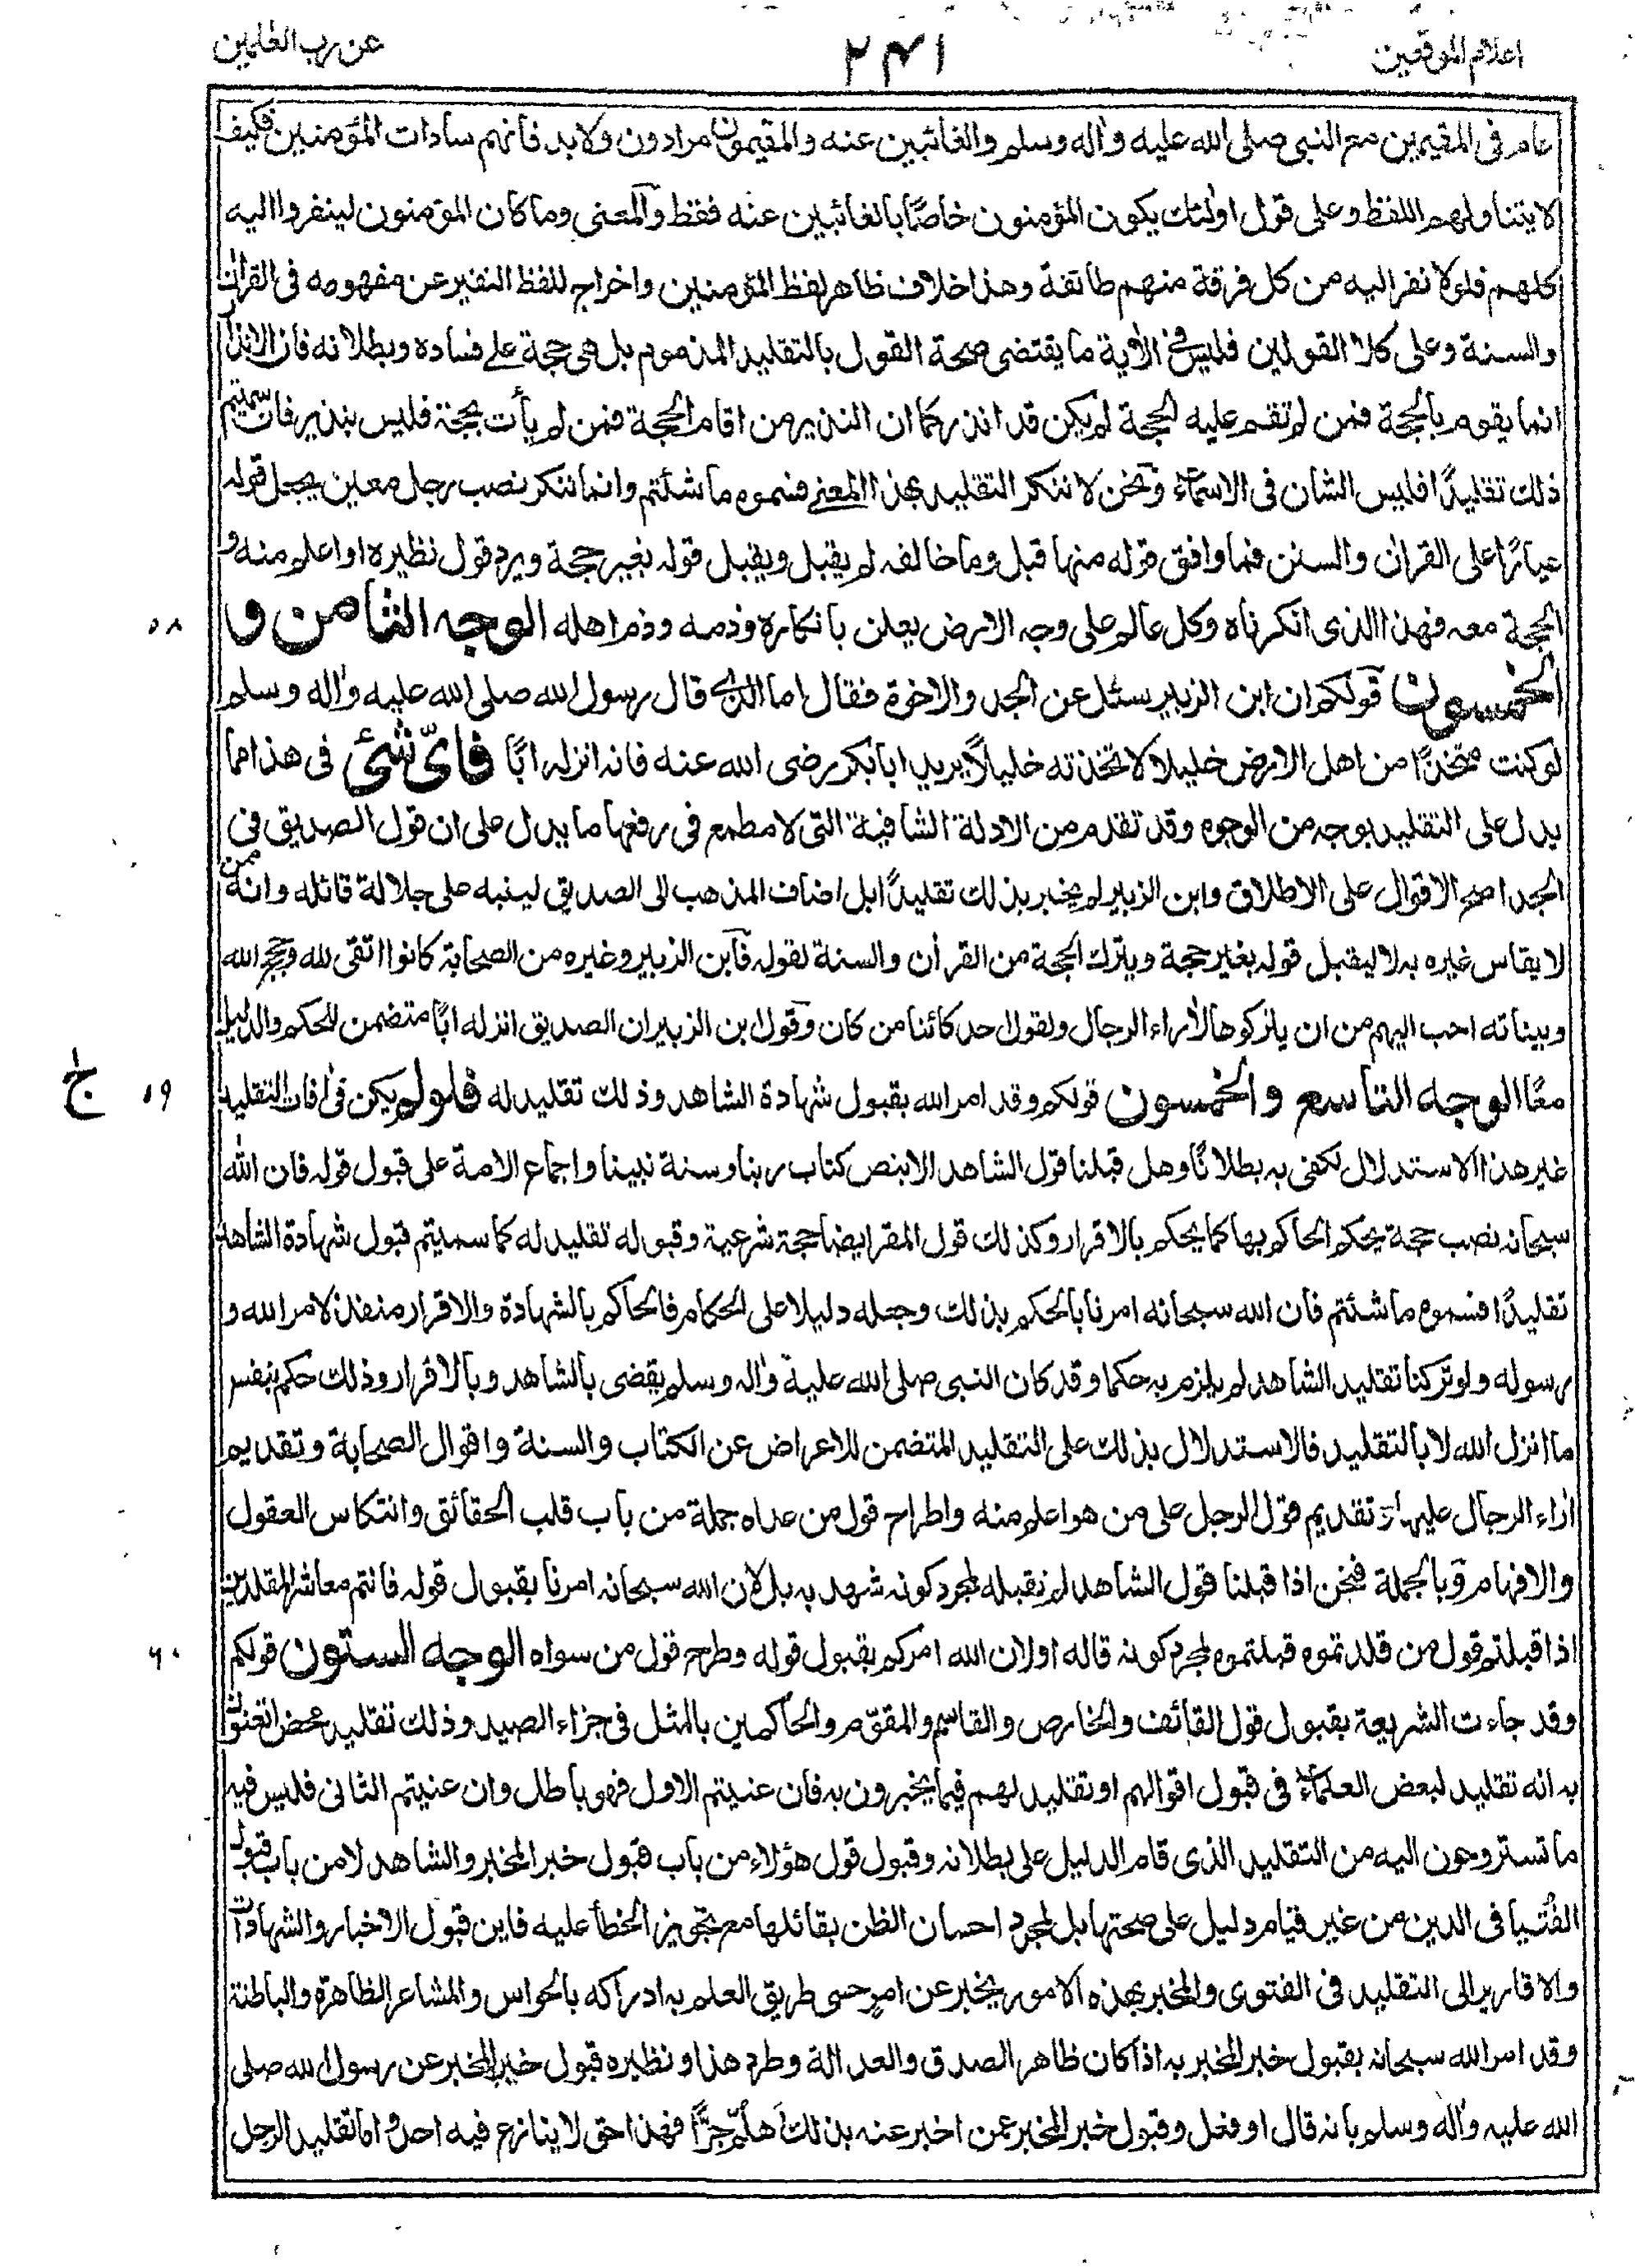 اعلام الموقعين
٢٤١
عن رب العلمين
عام فى المقيمين مع النبى صلى الله عليه واٰله وسلم والغائبين عنه والمقيمون مرادون ولابد فانهم سادات المؤمنين فكيف
لا يتناولهم اللفظ وعلى قول اولٰئك يكون المؤمنون خاصًّا بالغائبين عنه فقط والمعنى وما كان المؤمنون لينفروا اليه
كلهم فلولا نفر اليه من كل فرقة منهم طائفة وهذا خلاف ظاهر لفظ المؤمنين واخراج للفظ النفير عن مفهومه فى القراٰن
والسنة وعلى كلا القولين فليس فى الاٰية ما يقتضى صحة القول بالتقليد المذموم بل هى حجة على فساده وبطلانه فان الانذار
انما يقوم بالحجة فمن لم تقم عليه الحجة لم يكن قد انذر كما ان النذير من اقام الحجة فمن لم يأت بحجة فليس بنذير فان سميتم
ذلك تقليدًا فليس الشان فى الاسماء ونحن لا ننكر التقليد بهذا المعنى فسموه ما شئتم وانما ننكر نصب رجل معين يجعل قوله
عيارًا على القراٰن والسنن فما وافق قوله منها قبل وما خالفه لم يقبل ويقبل قوله بغير حجة ويرد قول نظيره او اعلم منه و
الحجة معه فهذا الذى انكرناه وكل عالم على وجه الارض يعلن بانكاره وذمه وذم اهله الوجه الثامن و
٥٨
الخمسون قولكم ان ابن الزبير سئل عن الجد والاخوة فقال اما الذى قال رسول الله صلى الله عليه واٰله وسلم
لو كنت متخذًا من اهل الارض خليلا لاتخذته خليلاً يريد ابا بكر رضى الله عنه فانه انزله ابًا فاىّ شئ فى هذا مما
يدل على التقليد بوجه من الوجوه وقد تقدم من الادلة الشافية التى لا مطمع فى رفعها ما يدل على ان قول الصديق فى
الجد اصح الاقوال على الاطلاق وابن الزبير لم يخبر بذلك تقليدًا بل اضاف المذهب الى الصديق لينبه على جلالة قائله وانه ممن
لا يقاس غيره به لا ليقبل قوله بغير حجة ويترك الحجة من القراٰن والسنة لقوله فابن الزبير وغيره من الصحابة كانوا اتقى لله وحجج الله
وبيناته احب اليهم من ان يتركوها لاٰراء الرجال ولقول احد كائنا من كان وقول ابن الزبير ان الصديق انزله ابًا متضمن للحكم والدليل
معًا الوجه التاسع والخمسون قولكم وقد امر الله بقبول شهادة الشاهد وذلك تقليد له فلو لم يكن فى اٰفات التقليد
٥٩
ج
غير هذا الاستدلال لكفى به بطلانًا وهل قبلنا قول الشاهد الا بنص كتاب ربنا وسنة نبينا واجماع الامة على قبول قوله فان الله
سبحانه نصب حجة يحكم الحاكم بها كما يحكم بالاقرار وكذلك قول المقر ايضا حجة شرعية وقبوله تقليد له كما سميتم قبول شهادة الشاهد
تقليدًا فسموه ما شئتم فان الله سبحانه امرنا بالحكم بذلك وجعله دليلا على الحكام فالحاكم بالشهادة والاقرار منفذ لامر الله و
رسوله ولو تركنا تقليد الشاهد لم يلزم به حكما وقد كان النبى صلى الله عليه واٰله وسلم يقضى بالشاهد وبالاقرار وذلك حكم بنفس
ما انزل الله لا بالتقليد فالاستدلال بذلك على التقليد المتضمن للاعراض عن الكتاب والسنة واقوال الصحابة وتقديم
اٰراء الرجال عليها وتقديم قول الرجل على من هو اعلم منه واطراح قول من عداه جملة من باب قلب الحقائق وانتكاس العقول
والافهام وبالجملة فنحن اذا قبلنا قول الشاهد لم نقبله لمجرد كونه شهد به بل لان الله سبحانه امرنا بقبول قوله فانتم معاشر المقلدين
اذا قبلتم قول من قلدتموه قبلتموه لمجرد كونه قاله او لان الله امركم بقبول قوله وطرح قول من سواه الوجه الستون قولكم
٦٠
وقد جاءت الشريعة بقبول قول القائف والخارص والقاسم والمقوّم والحاكمين بالمثل فى جزاء الصيد وذلك تقليد محض اتعنون
به انه تقليد لبعض العلماء فى قبول اقوالهم او تقليد لهم فيما يخبرون به فان عنيتم الاول فهو باطل وان عنيتم الثانى فليس فيه
ما تستروحون اليه من التقليد الذى قام الدليل على بطلانه وقبول قول هؤلاء من باب قبول خبر المخبر والشاهد لا من باب قبول
الفُتيا فى الدين من غير قيام دليل على صحتها بل لمجرد احسان الظن بقائلها مع تجويز الخطأ عليه فاين قبول الاخبار والشهادات
والاقارير الى التقليد فى الفتوى والمخبر بهذه الامور يخبر عن امر حسى طريق العلم به ادراكه بالحواس والمشاعر الظاهرة والباطنة
وقد امر الله سبحانه بقبول خبر المخبر به اذا كان ظاهر الصدق والعدالة وطرد هذا ونظيره قبول خبر المخبر عن رسول الله صلى
الله عليه واٰله وسلم بانه قال او فعل وقبول خبر المخبر عمن اخبر عنه بذلك وهلمّ جرًّا فهذا حق لا ينازع فيه احد واما تقليد الرجل